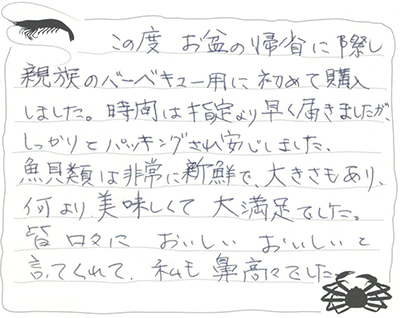 この度 お盆の帰省に際し
親族のバーベキュー用に初めて購入
しました。時間は指定より早く届きましたが、
しっかりとパッキングされ安心しました。
魚貝類は非常に新鮮で、大きさもあり、
何より美味しくて 大満足でした。
皆 口々に おいしい おいしい と
言ってくれて、私も 鼻高々でした